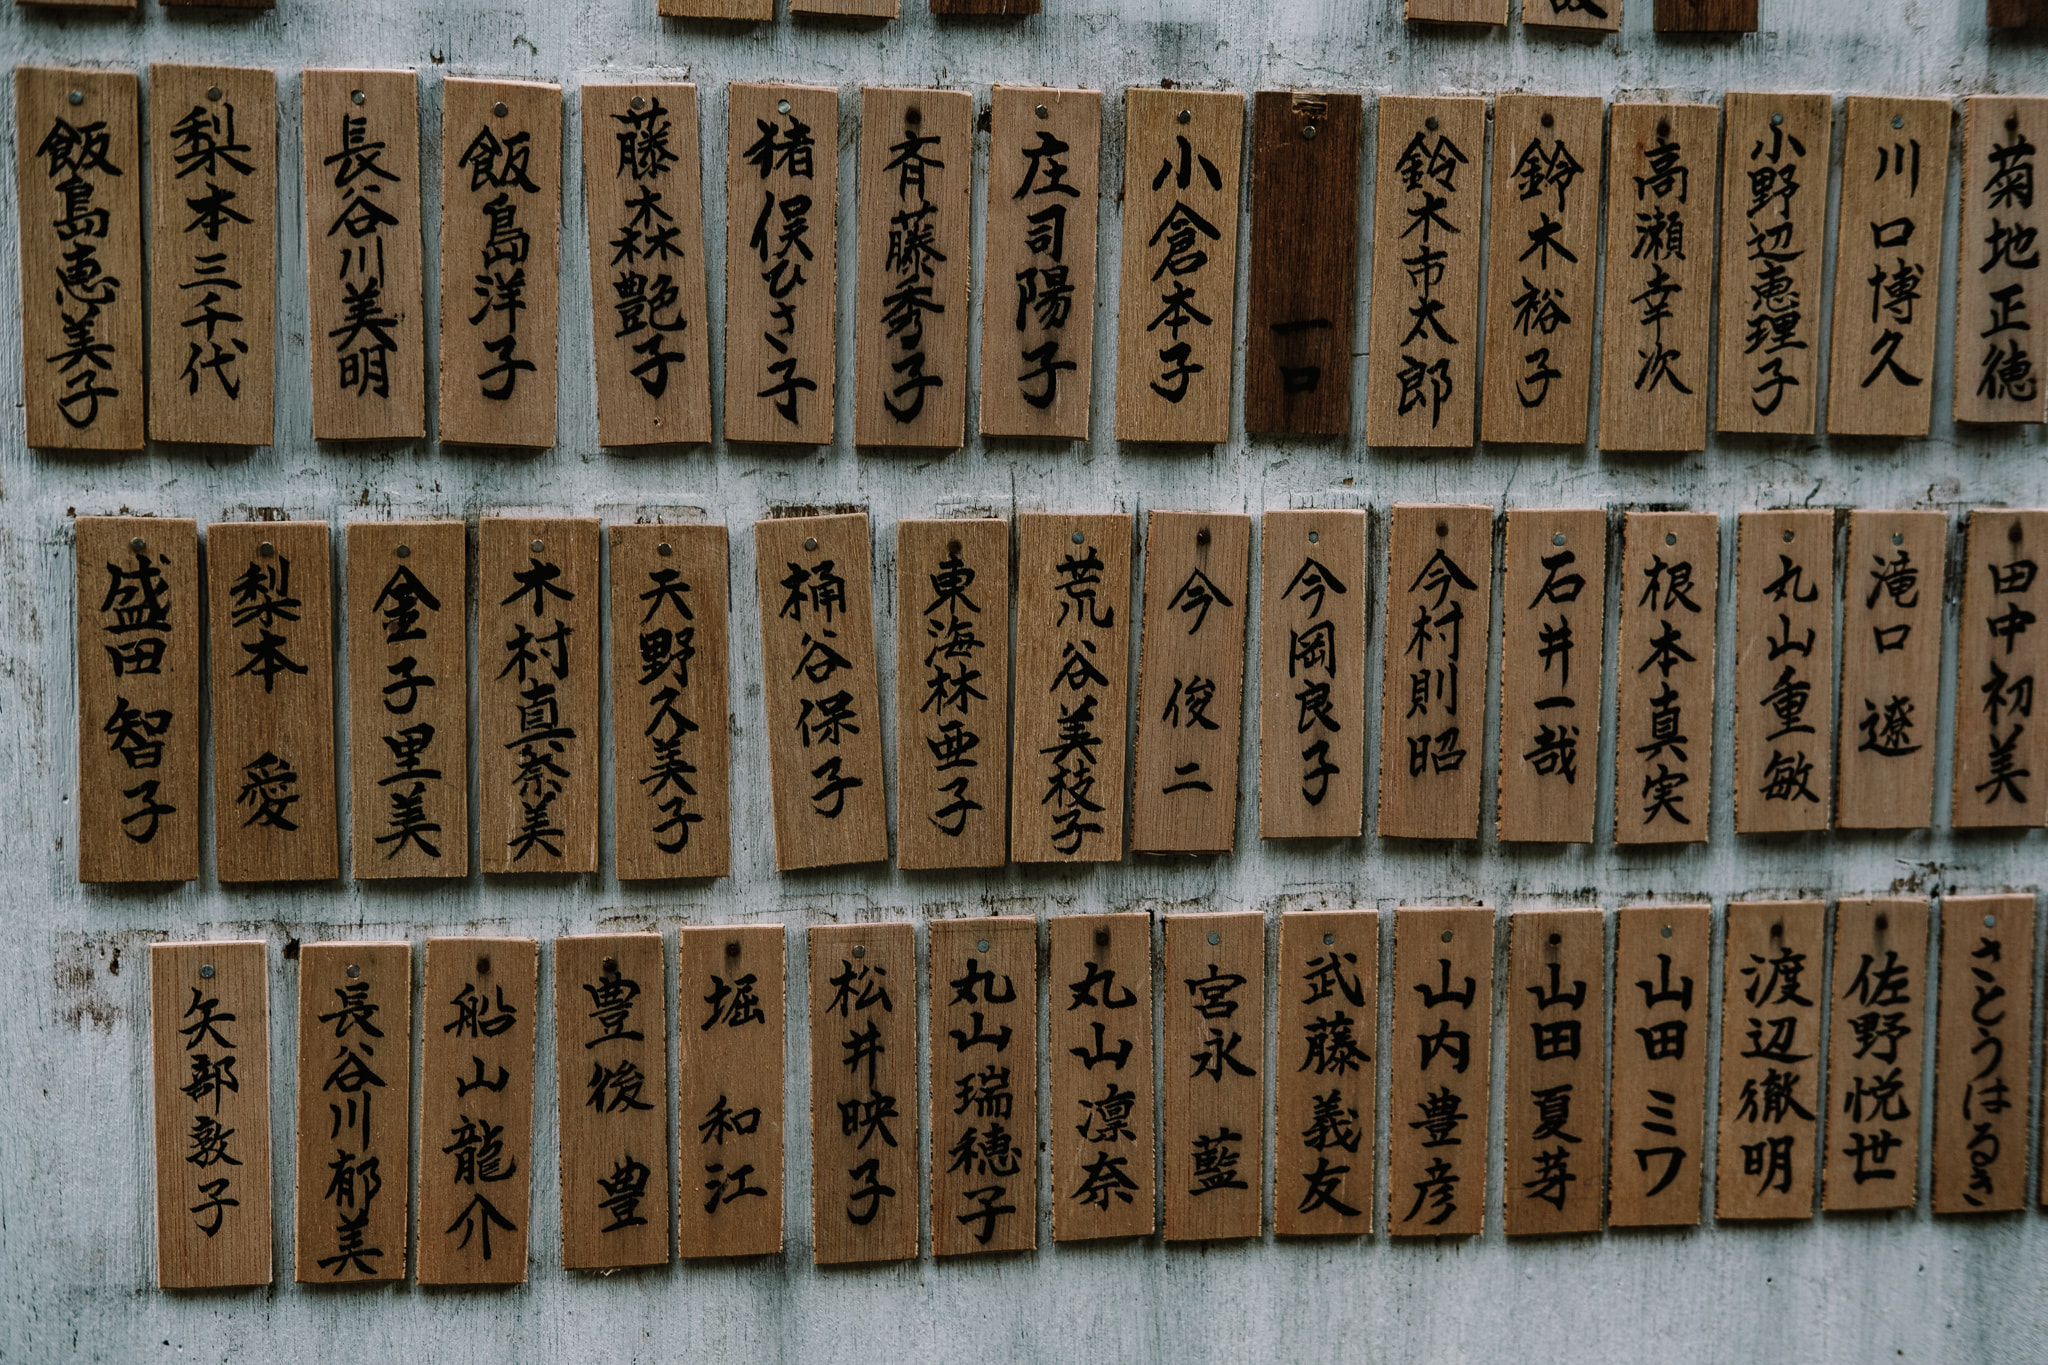 菊地正徳
川口博久
小野辺恵理子
高瀬幸次
鈴木裕子
鈴木市太郎
一口
小倉本子
庄司陽子
斉藤秀子
猪俣ひさ子
藤森艶子
飯島洋子
長谷川美明
梨本三千代
飯島恵美子
田中初美
滝口 遼
丸山重敏
根本真実
石井一哉
今村則昭
今岡良子
今 俊二
荒谷美枝子
東海林亜子
桶谷保子
天野久美子
木村真奈美
金子里美
梨本 愛
盛田智子
さとうはるき
佐野悦世
渡辺徹明
山田ミワ
山田夏芽
山内豊彦
武藤義友
宮永 藍
丸山凛奈
丸山瑞穂子
松井映子
堀 和江
豊後 豊
船山龍介
長谷川郁美
矢部敦子